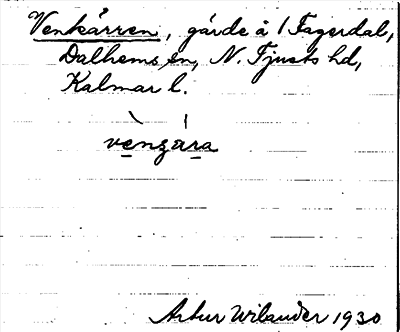 Venkärren, gärde å 1 Fagerdal,
Dalhems sn, N. Tjusts hd,
Kalmar l.
vènzára
Artur Wilander 1930